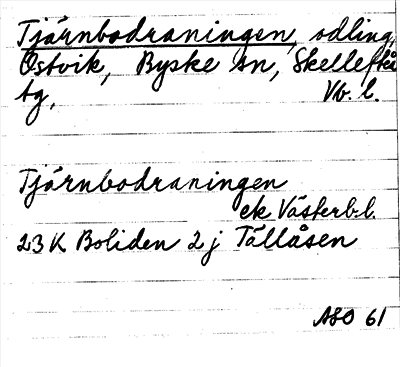 Tjärnbodraningen, odling,
Ostvik, Byske sn, Skellefteå
tg, Vb. l.
Tjärnbodraningen
ek Västerb.l.
23 K Boliden 2 j Tällåsen
ASO 61